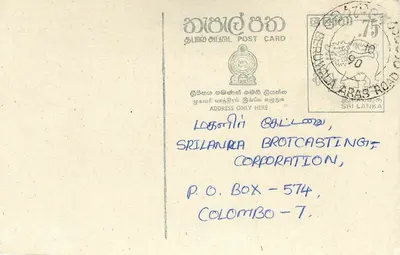 තැපැල් පත
தபால் அட்டை POST CARD
ලිපිනය පමණක් මෙහි ලියන්න
முகவரி மாத்திரம் இங்கே எழுதுக
ADDRESS ONLY HERE
ශ්‍රී ලංකා
.75
SRI LANKA
10
90
BERUWALA ARAB ROAD
மகளிர் கேட்டவை,
SRILANKA BROTCASTING-
CORPORATION,
P.O. BOX - 574,
COLOMBO - 7.